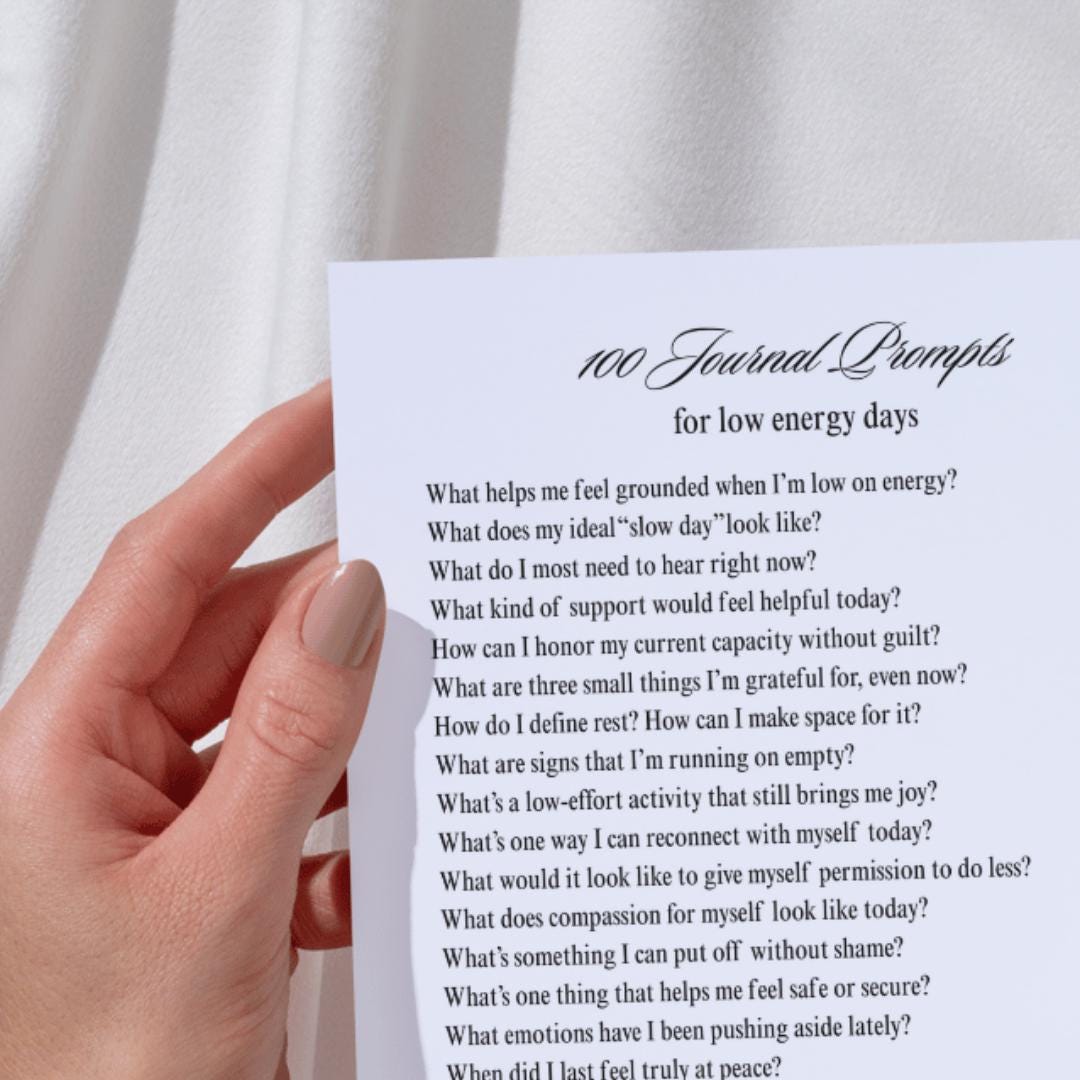 100 Journal Prompts
for low energy days
What helps me feel grounded when I’m low on energy?
What does my ideal“slow day”look like?
What do I most need to hear right now?
What kind of support would feel helpful today?
How can I honor my current capacity without guilt?
What are three small things I’m grateful for, even now?
How do I define rest? How can I make space for it?
What are signs that I’m running on empty?
What’s a low-effort activity that still brings me joy?
What’s one way I can reconnect with myself today?
What would it look like to give myself permission to do less?
What does compassion for myself look like today?
What’s something I can put off without shame?
What’s one thing that helps me feel safe or secure?
What emotions have I been pushing aside lately?
When did I last feel truly at peace?